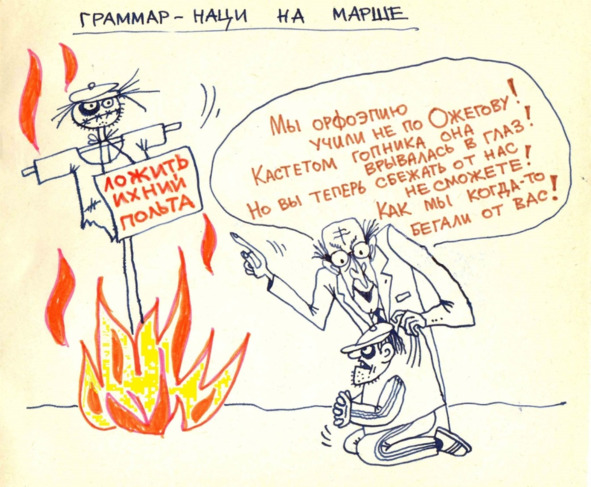 ГРАММАР-НАЦИ НА МАРШЕ
МЫ ОРФОЭПИЮ
УЧИЛИ НЕ ПО ОЖЕГОВУ!
КАСТЕТОМ ГОПНИКА ОНА
ВРЫВАЛАСЬ В ГЛАЗ!
НО ВЫ ТЕПЕРЬ СБЕЖАТЬ ОТ НАС
НЕ СМОЖЕТЕ!
КАК МЫ КОГДА-ТО
БЕГАЛИ ОТ ВАС!
ЛОЖИТЬ
ИХНИЙ
ПОЛЬТА